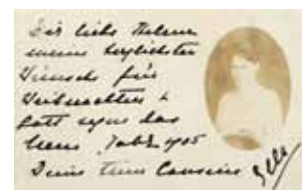 Dir liebe Helene
meine herzlichsten
Wünsche für
Weihnachten &
Gott segne das
neue Jahr 1905
Deine treue Cousine Ella